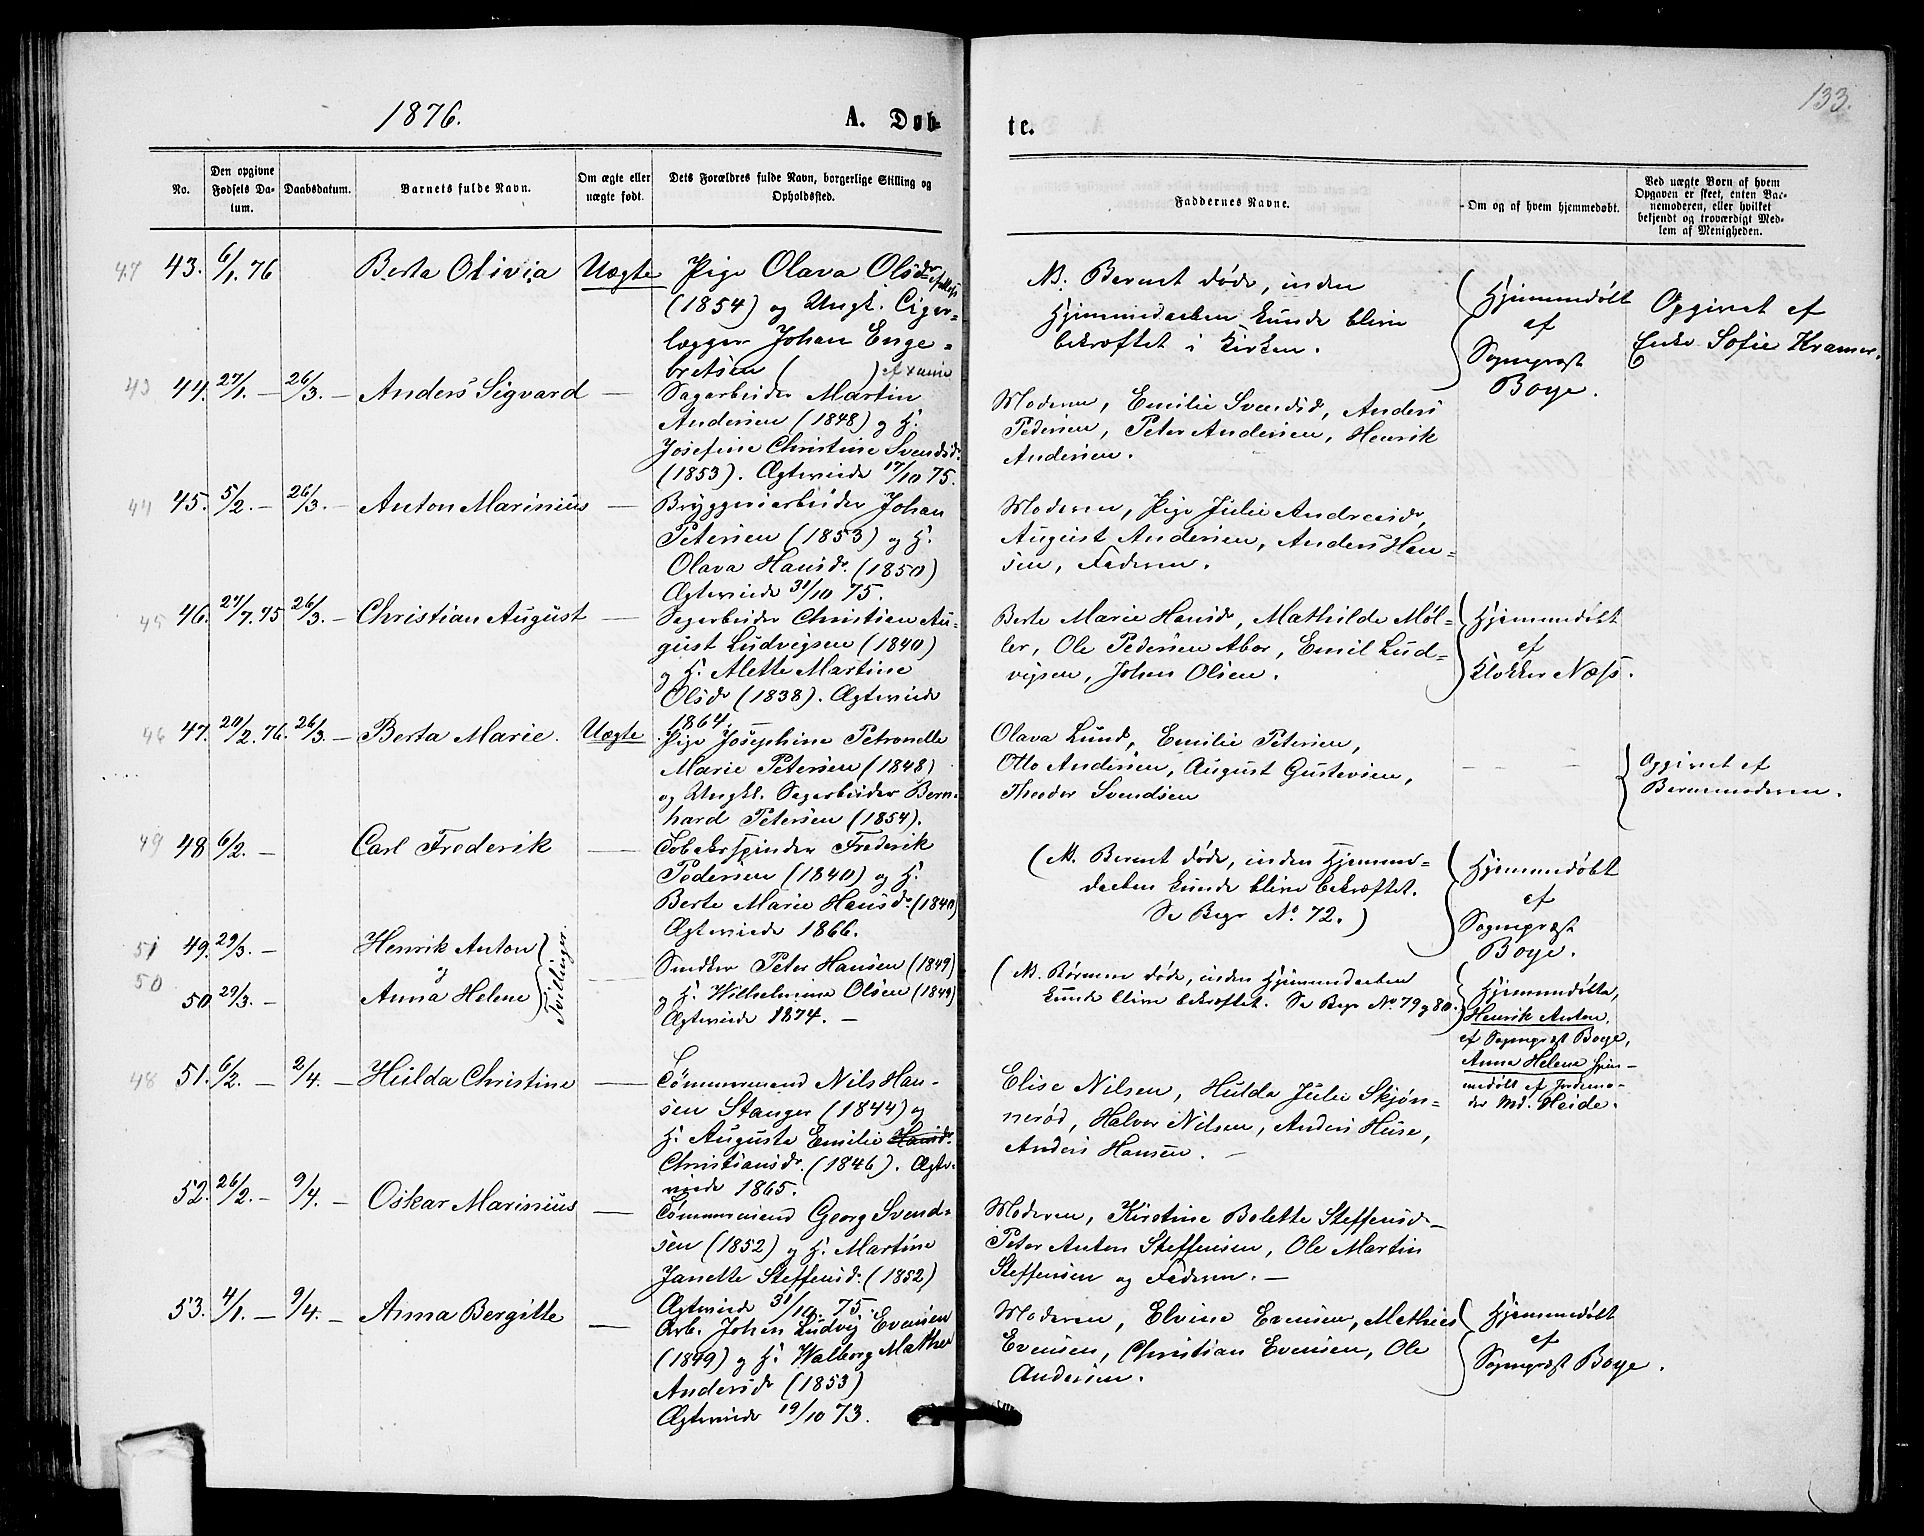 1876.
A. Døb-
te.
133.
No.
Den opgivne Fødsels Da-
tum.
Daabsdatum.
Barnets fulde Navn.
Om ægte eller
uægte født.
Dets Forældres fulde Navn, borgerlige Stilling og
Opholdssted.
Faddernes Navne.
Om og af hvem hjemmedøbt.
Ved uægte Børn af hvem
Opgaven er skeet, enten Bar-
nemoderen, eller hvilket
bekjendt og troværdigt Med-
lem af Menigheden.
47 43. 6/1. 76 Berta Olivia Uægte
Pige Olava Olsdr
(1854) og Ungk. Cigar-
lægger Johan Enge-
bretsen ( )
NB. Barnet døde, inden
Hjemmedaaben kunde blive
bekræftet i Kirken.
Hjemmedøbt
af
Sognepræst
Boye.
Opgivet af
Enke Sofie Kramer.
43 44. 27/1. — 26/3. — Anders Sigvard —
Sagarbeider Martin
Andersen (1848) og H.
Josefine Christine Svendsdr.
(1853). Ægteviede 17/10 75.
Moderen, Emilie Svendsd, Anders
Pedersen, Peter Andersen, Henrik
Andersen.
44 45. 5/2. — 26/3. — Anton Marinius —
Bryggeriarbeider Johan
Petersen (1853) og H.
Olava Hansdr. (1850)
Ægteviede 31/10 75.
Moderen, Pige Julie Andreasdr,
August Andersen, Anders Han-
sen, Faderen.
45 46. 27/7. 75 26/3. — Christian August —
Sagarbeider Christian Au-
gust Ludvigsen (1840)
og H. Alette Martine
Olsdr (1838). Ægteviede
1864.
Berte Marie Hansdr, Mathilde Møl-
ler, Ole Pedersen Abor, Emil Lud-
vigsen, Johan Olsen.
Hjemmedøbt
af
Klokker Næss.
46 47. 20/2. 76. 26/3. — Berta Marie. Uægte
Pige Josephine Petronelle
Marie Petersen (1848)
og Ungk. Sagarbeider Bern-
hard Petersen (1854).
Olava Lund, Emilie Petersen,
Otto Andersen, August Gustavsen,
Theodor Svendsen
— — —
Opgivet af
Barnemoderen.
49 48 6/2. — Carl Frederik —
Tobakspinder Frederik
Pedersen (1840) og H.
Berte Marie Hansdr (1840)
Ægteviede 1866.
(NB. Barnet døde, inden Hjemme-
daaben kunde blive bekræftet.
Se Begr No. 72.)
Hjemmedøbt
af
Sognepræst
Boye.
51 49. 29/3. — Henrik Anton
og
50 50 29/3. — Anna Helene
Tvillinger. —
Snedker Peter Hansen (1849)
og H. Wilhelmine Olsen (1849)
Ægteviede 1874. —
(NB. Børnene døde, inden Hjemmedaaben
kunde blive bekræftet. Se Begr No. 79 og 80.)
Hjemmedøbte,
Henrik Anton,
af Sognepræst Boye,
Anna Helene hjem-
medøbt af Jordemo-
der Md. Heide.
48 51. 6/2. — 2/4. — Hulda Christine —
Tømmermand Nils Han-
sen Stanger (1844) og
H. Augusta Emilie Hansdr.
Christiansdr. (1846). Ægte-
viede 1865.
Elise Nilsen, Hulda Julie Skjøn-
nerød, Halvor Nilsen, Anders Huse,
Anders Hansen. —
52. 26/2. — 9/4. — Oskar Marinius —
Tømmermand Georg Svend-
sen (1852) og H. Martine
Janette Steffensd. (1852)
Ægteviede 31/10 75.
Moderen, Kirstine Bolette Steffensd —
Peter Anton Steffensen, Ole Martin
Steffensen og Faderen. —
53. 4/1. — 9/4. — Anna Bergitte —
Arb. Johan Ludvig Evensen
(1849) og H. Walborg Mathea
Andersdr (1853)
Ægteviede 19/10 73.
Moderen, Elvine Evensen, Mathias
Evensen, Christian Evensen, Ole
Andersen.
Hjemmedøbt
af
Sognepræst Boye.